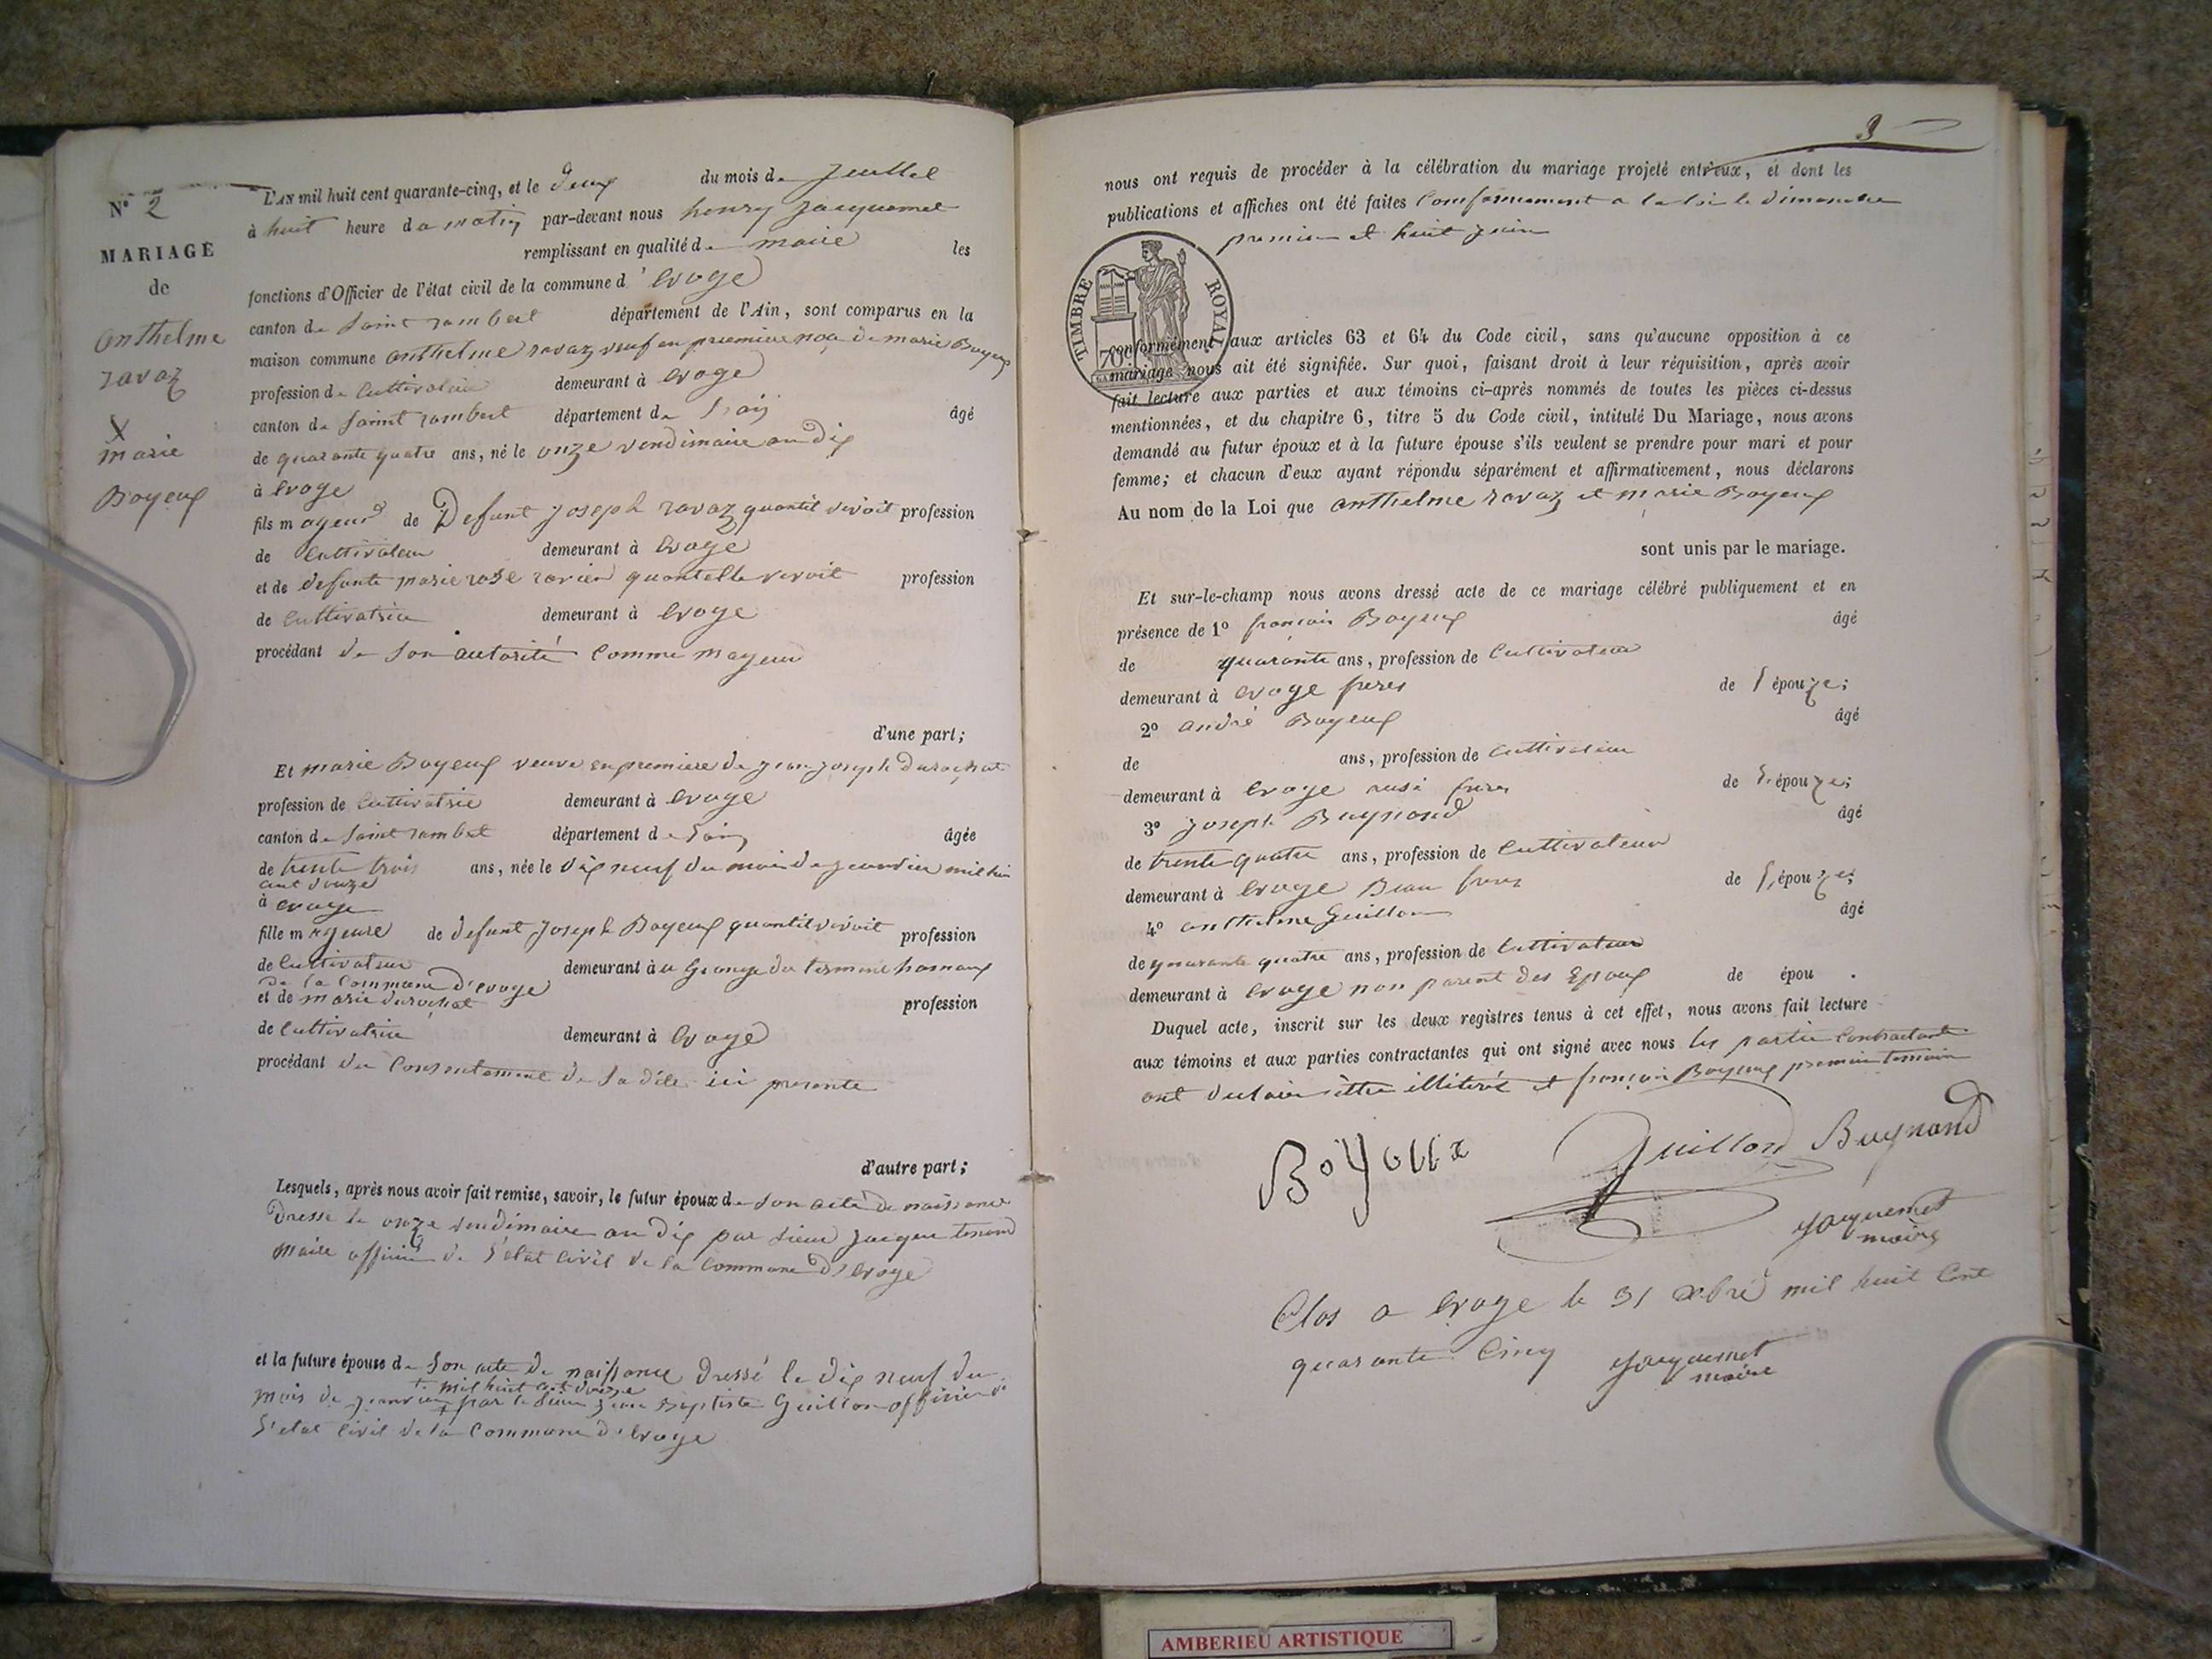 N° 2
MARIAGE
de
anthelme
ravaz
X
marie
Boyeux
L'AN mil huit cent quarante-cinq, et le deux du mois de Juillet
à huit heure du matin par-devant nous henry Jacquemet
remplissant en qualité de maire les
fonctions d'Officier de l'état civil de la commune d'evoge
canton de Saint rambert département de l'Ain, sont comparus en la
maison commune anthelme ravaz veuf en premiere noce de marie Boyeux
profession de Cultivateur demeurant à evoge
canton de Saint rambert département de l'ain âgé
de quarante quatre ans, né le onze vendimaire an dix
à evoge
fils mageur de Defunt joseph ravaz quantil vivoit profession
de Cultivateur demeurant à evoge
et de defunte marie rose ravier quantelle vivoit profession
de Cultivatrice demeurant à evoge
procédant de son autorité Comme mageur
d'une part;
Et marie Boyeux veuve en premiere de jean joseph durochat
profession de Cultivatrie demeurant à evoge
canton de Saint rambet département de l'ain âgée
de trente trois ans, née le dix neuf du mois de janvier mil hui
cent douze
à evoge
fille mageure de defunt joseph Boyeux quantil vivoit profession
de Cultivateur demeurant à la Grange du terment hamaux
de la Commune d'evoge
et de marie durochat profession
de Cultivatrice demeurant à evoge
procédant du Consentement de sa dite ici presente
d'autre part;
Lesquels, après nous avoir fait remise, savoir, le futur époux de son acte de naissance
Dressé le onze vendimaire an dix par sieur jacque tenand
maire officié de l'état Civil de la Commune d'evoge
et la future épouse de son acte de naissance Dressé le dix neuf du
+ mil huit cent douze
mois de janvier + par le sieur jean Baptiste Guillon officier de
l'etat Civil de la Commune d'evoge
3
nous ont requis de procéder à la célébration du mariage projeté entr'eux, et dont les
publications et affiches ont été faites Conformement a la loi le dimanche
premier et huit juin
TIMBRE ROYAL
70c
conformément aux articles 63 et 64 du Code civil, sans qu'aucune opposition à ce
mariage nous ait été signifiée. Sur quoi, faisant droit à leur réquisition, après avoir
fait lecture aux parties et aux témoins ci-après nommés de toutes les pièces ci-dessus
mentionnées, et du chapitre 6, titre 5 du Code civil, intitulé Du Mariage, nous avons
demandé au futur époux et à la future épouse s'ils veulent se prendre pour mari et pour
femme; et chacun d'eux ayant répondu séparément et affirmativement, nous déclarons
Au nom de la Loi que anthelme ravaz et marie Boyeux
sont unis par le mariage.
Et sur-le-champ nous avons dressé acte de ce mariage célébré publiquement et en
présence de 1° françois Boyeux âgé
de quarante ans, profession de Cultivateur
demeurant à evoge freres de l'épouze;
2° andré Boyeux âgé
de ans, profession de Cultivateur
demeurant à evoge freres de l'épouze;
3° joseph Buynand âgé
de trente quatre ans, profession de Cultivateur
demeurant à evoge Beau freres de l'épouze;
4° anthelme Guillon âgé
de quarante quatre ans, profession de Cultivateur
demeurant à evoge non parent des Epoux de épou .
Duquel acte, inscrit sur les deux registres tenus à cet effet, nous avons fait lecture
aux témoins et aux parties contractantes qui ont signé avec nous les partie Contractante
ont declaire être illiteré et françois Boyeux premier temoin
BoYoux Guillon Buynand
Jacquemet
maire
Clos a evoge le 31 xbre mil huit Cent
quarante Cinq Jacquemet
maire
AMBERIEU ARTISTIQUE